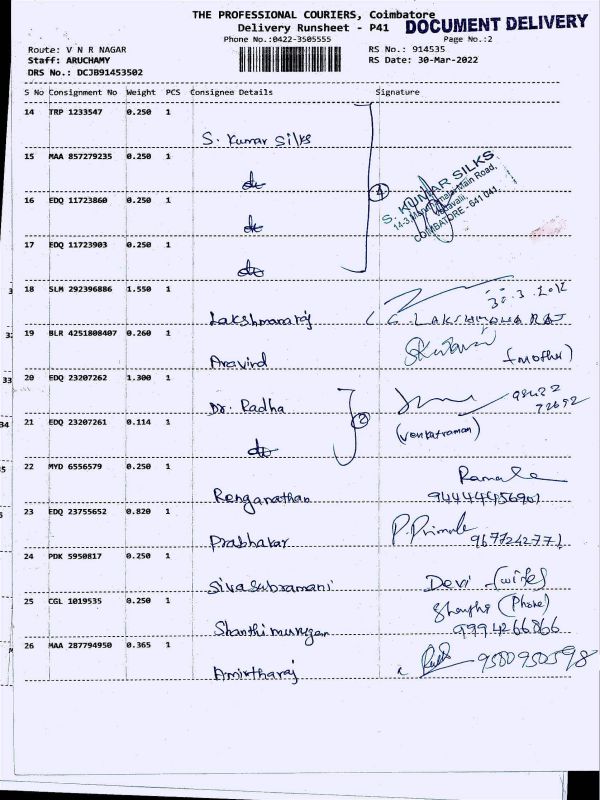 THE PROFESSIONAL COURIERS, Coimbatore
DOCUMENT DELIVERY
Delivery Runsheet - P41
Phone No.:0422-3505555
Page No.:2
Route: V N R NAGAR
RS No.: 914535
Staff: ARUCHAMY
RS Date: 30-Mar-2022
DRS No.: DCJB91453502
S No Consignment No Weight PCS Consignee Details Signature
14 TRP 1233547 0.250 1
S. Kumar Silks
15 MAA 857279235 0.250 1
do
4
S. KUMAR SILKS
Main Road,
COIMBATORE - 641 041.
16 EDQ 11723860 0.250 1
do
17 EDQ 11723903 0.250 1
do
18 SLM 292396886 1.550 1
Lakshmanaraj
19 BLR 4251808407 0.260 1
Aravind
(mother)
20 EDQ 23207262 1.300 1
Dr. Radha
98422
72692
2
21 EDQ 23207261 0.114 1
do
(venkatraman)
22 MYD 6556579 0.250 1
Renganathan
23 EDQ 23755652 0.820 1
Prabhakar
9677242771
24 PDK 5950817 0.250 1
Sivasubramani
Devi (wife)
25 CGL 1019535 0.250 1
Shanthi murugan
(Phone)
9994266866
26 MAA 287794950 0.365 1
Amirtharaj
9580950598